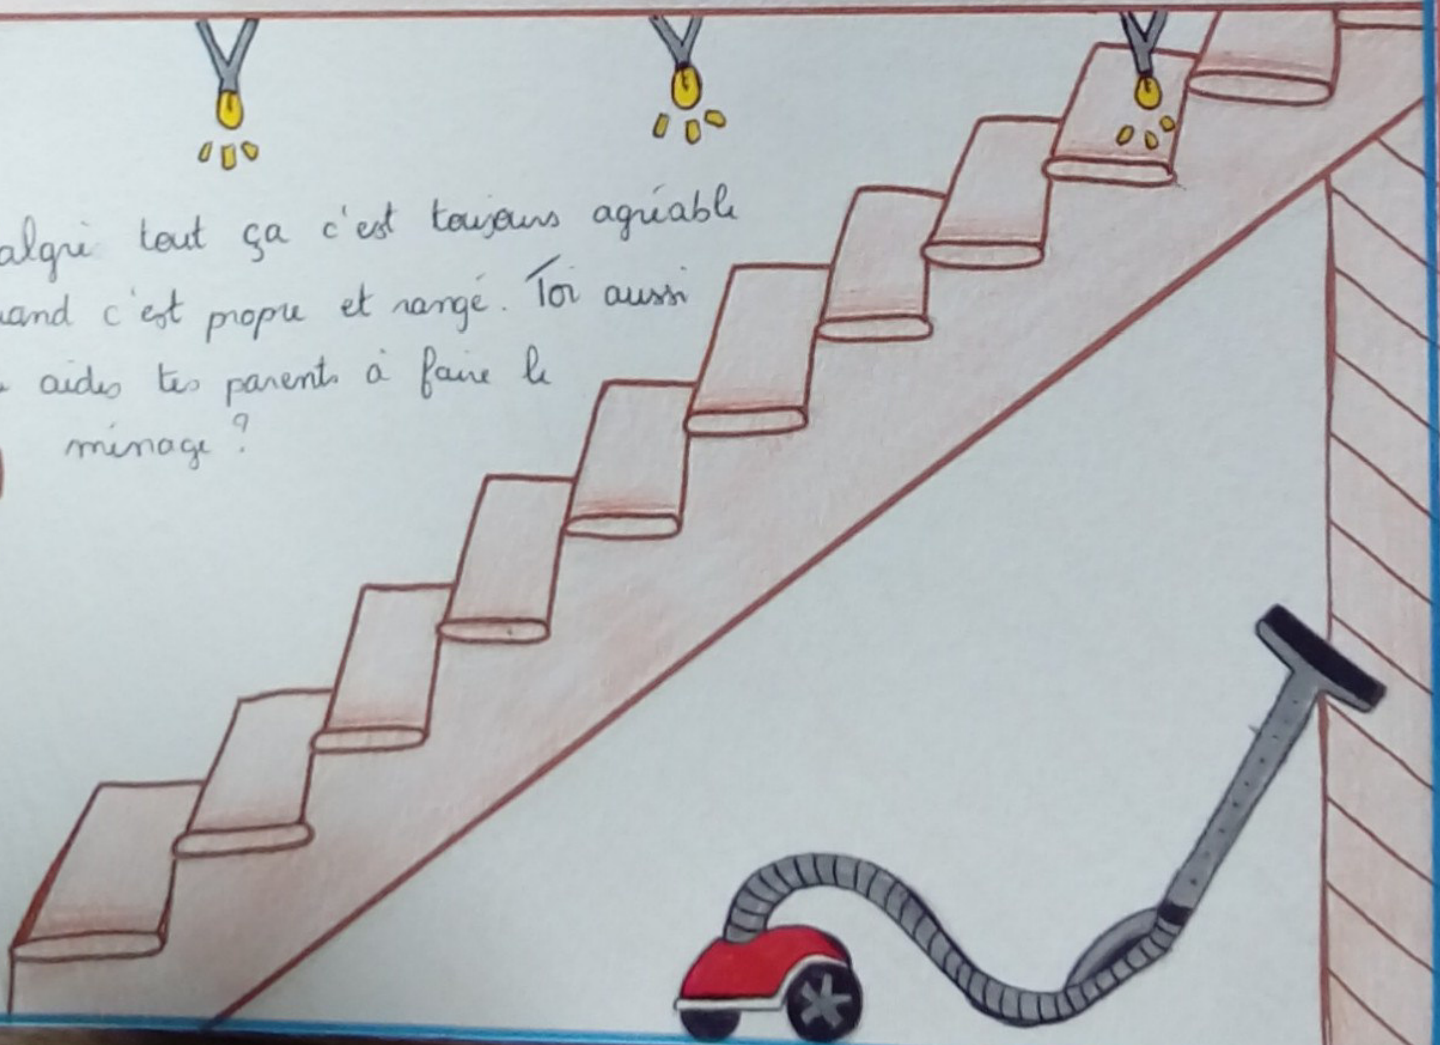 algré tout ça c'est toujours agréable
uand c'est propre et rangé. Toi aussi
aides tes parents à faire le
ménage ?